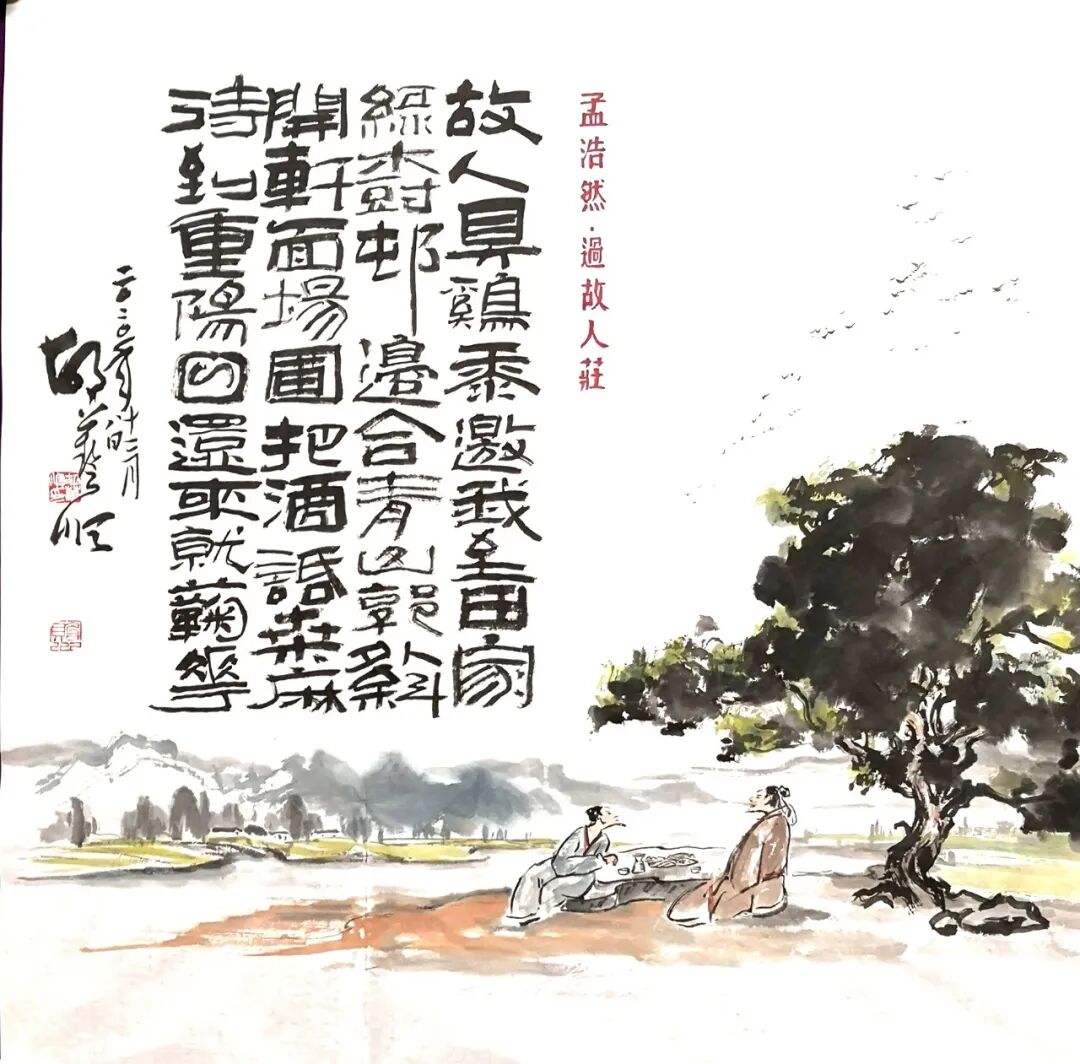 孟浩然·過故人莊
故人具鷄黍邀我至田家
綠樹邨邊合青山郭斜
開軒面場圃把酒話桑麻
待到重陽日還來就蘜華
二〇二〇年十二月八日